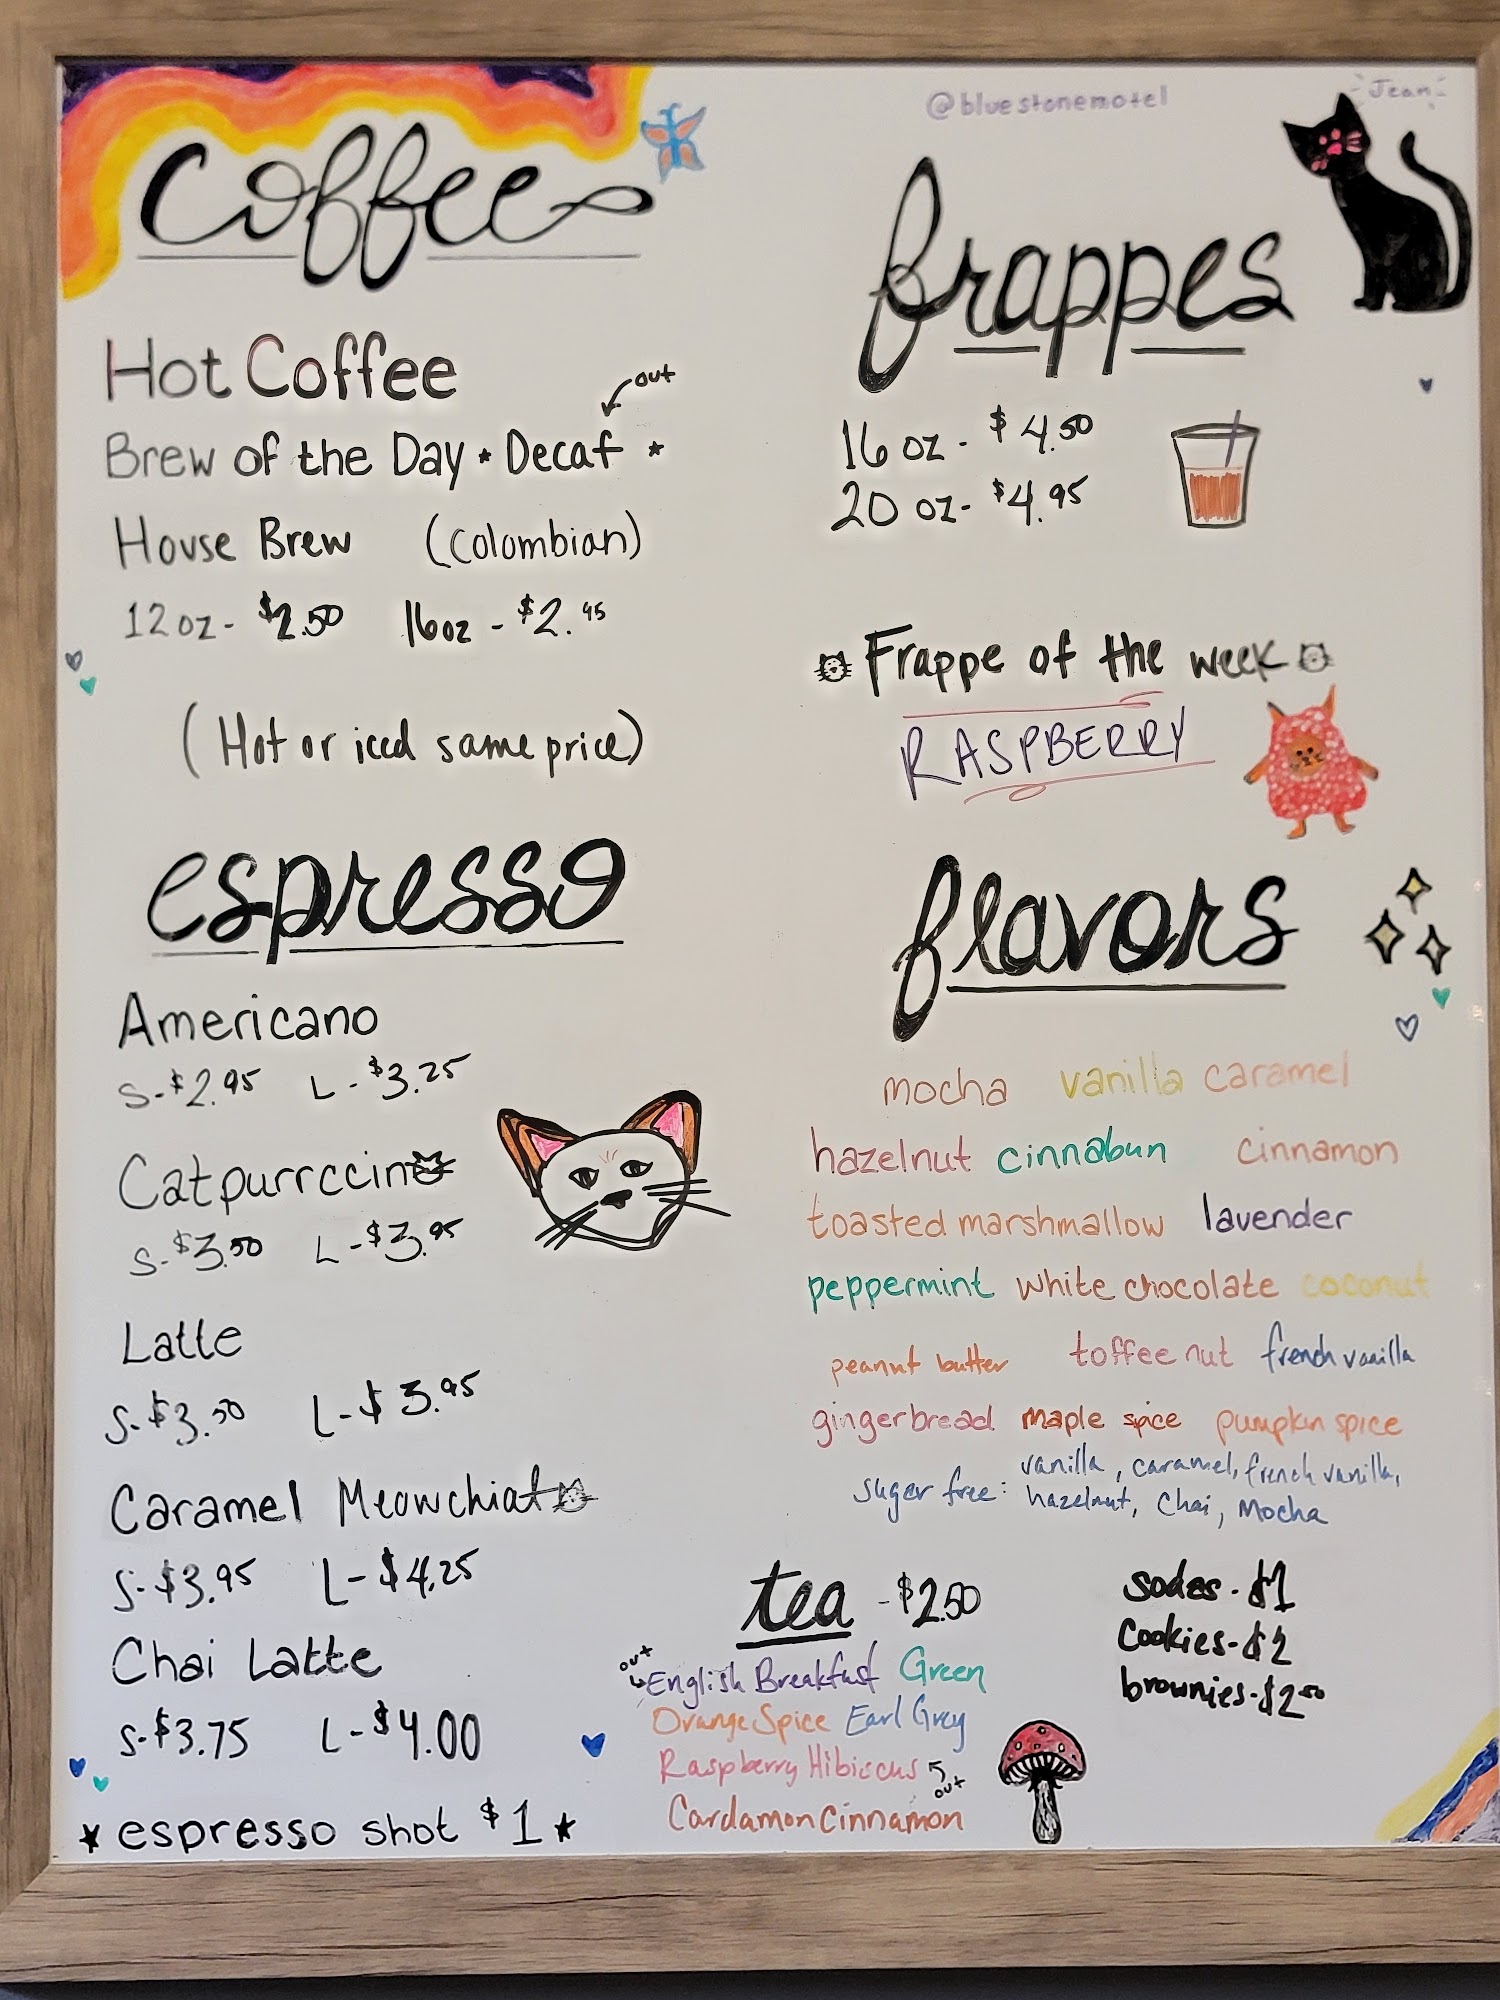 coffee
Hot Coffee
out
Brew of the Day * Decaf *
House Brew (Colombian)
12 oz - $2.50 16 oz - $2.95
(Hot or iced same price)
espresso
Americano
S - $2.95 L - $3.25
Catpurrccino
S - $3.50 L - $3.95
Latte
S - $3.50 L - $3.95
Caramel Meowchiato
S - $3.95 L - $4.25
Chai Latte
S - $3.75 L - $4.00
* espresso shot $1 *
@bluestonemotel
Jean
frappes
16 oz - $4.50
20 oz - $4.95
Frappe of the week
RASPBERRY
flavors
mocha vanilla caramel
hazelnut cinnabun cinnamon
toasted marshmallow lavender
peppermint white chocolate coconut
peanut butter toffee nut french vanilla
gingerbread maple spice pumpkin spice
sugar free: vanilla, caramel, french vanilla,
hazelnut, Chai, Mocha
tea - $2.50
out
English Breakfast Green
Orange Spice Earl Grey
Raspberry Hibiscus
out
Cardamon Cinnamon
sodas - $1
Cookies - $2
brownies - $2.50